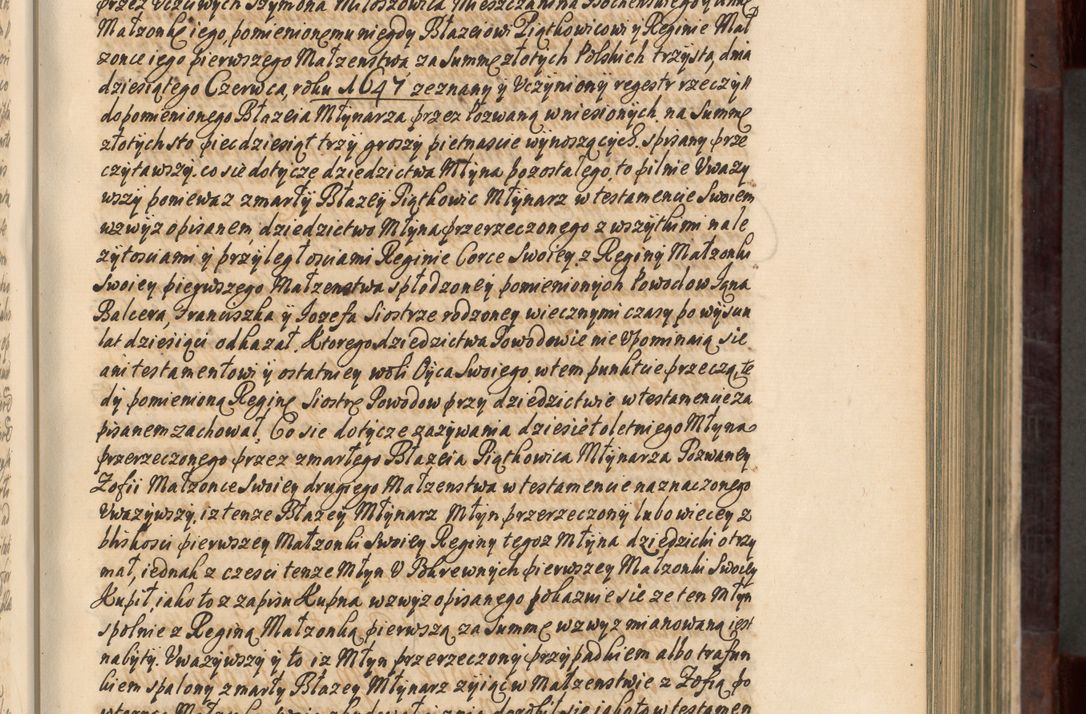 przez Uczciwych Szymona Miloszowica Mieszczanina Bochenskiego y Annę
Małzonkę iego, pomienionemu niegdy Błazeiowi Piątkowicowi y Reginie Mał
zonce iego pierwszego Małzenstwa za Summę złotych Polskich trzysta dnia
dziesiątego Czerwca, roku 1647 zeznany y Uczyniony regestr rzeczy
do pomienionego Błazeia Młynarza przez Pozwaną wniesionych, na Summę
złotych sto piecdziesiąt trzy groszy pietnascie wynoszących spisany prze
czytawszy. co sie dotycze dziedzictwa Młyna pozostałego, to pilnie Uwazy
wszy poniewaz zmarły Błazey Piątkowic Młynarz w testamencie Swoiem
wzwyz opisanem, dziedzictwo Młyna przerzeczonego z wszytkimi nale
zytosciami y przyległosciami Reginie Corce Swoiey z Reginy Małzonki
Swoiey pierwszego Małzenstwa spłodzoney pomienionych Powodow Jana
Balcera, Franciszka y Jozefa Siostrze rodzoney wiecznymi czasy po wysciu
lat dziesięci odkazał. Ktorego dziedzictwa Powodowie nie Upominaią się
ani testamentowi y ostatniey woli Oyca Swoiego, w tem punkcie przeczą te
dy pomienioną Reginę Siostrę Powodow przy dziedzictwie w testamencie za
pisanem zachował. Co sie dotycze zazywania dziesiętoletniego Młyna
przerzeczonego przez zmarłego Błazeia Piątkowica Młynarza Pozwaney
Zofii Małzonce Swoiey drugiego Małzenstwa w testamencie naznaczonego
Uwazywszy, iz tenze Błazey Młynarz Młyn przerzeczony lubo wiecey z
bliskosci pierwszey Małzonki Swoiey Reginy tegoz Młyna dziedziczki otrzy
mał, iednak z czesci tenze Młyn U Pokrewnych pierwszey Małzonki Swoiey
Kupił, iako to z zapisu Kupna wzwyz opisanego pokazuie sie ze ten Młyn
spolnie z Reginą Małzonką pierwszą za Summę wzwyz mianowaną iest
nabyty. Uwazywszy y to iz Młyn przerzeczony przypadkiem albo trafun
kiem spalony zmarły Błazey Młynarz zyiąc w Małzenstwie z Zofią po